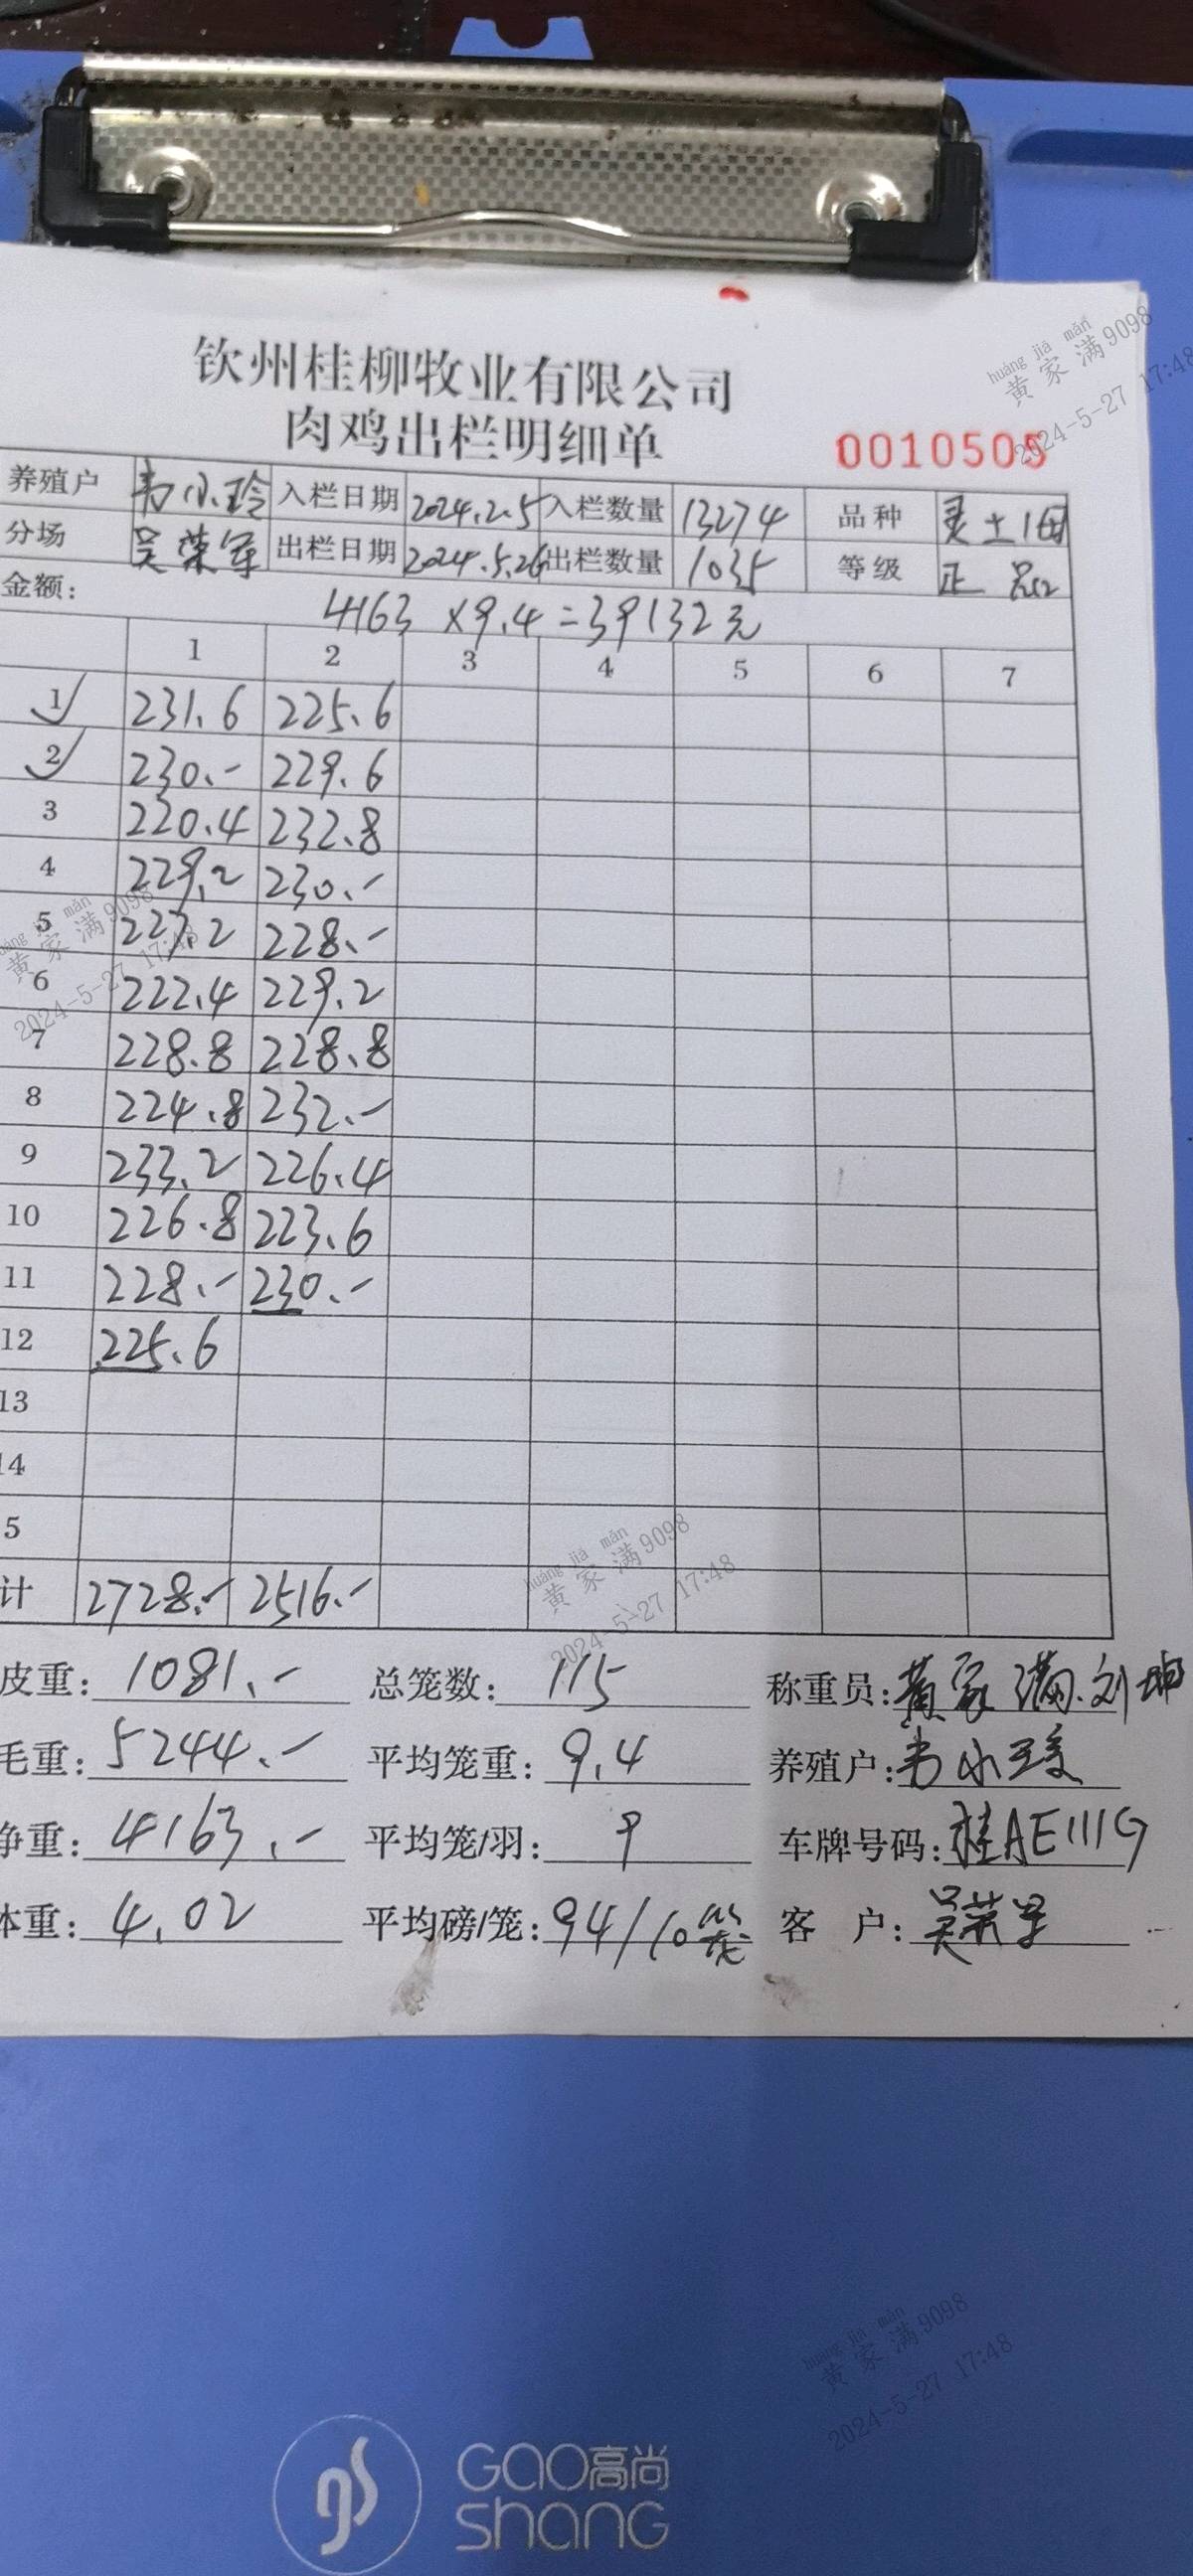 钦州桂柳牧业有限公司
肉鸡出栏明细单
0010505
养殖户 韦小玲 入栏日期 2024.2.5 入栏数量 13274 品种 灵土1母
分场 吴荣军 出栏日期 2024.5.26 出栏数量 1035 等级 正品
金额: 4163 ×9.4=39132元
1 2 3 4 5 6 7
1 231.6 225.6
2 230.- 229.6
3 220.4 232.8
4 229.2 230.-
5 227.2 228.-
6 222.4 229.2
7 228.8 228.8
8 224.8 232.-
9 233.2 226.4
10 226.8 223.6
11 228.- 230.-
12 225.6
13
14
5
计 2728.- 2516.-
皮重: 1081.- 总笼数: 115 称重员: 黄家满.刘坤
毛重: 5244.- 平均笼重: 9.4 养殖户: 韦小玲
净重: 4163.- 平均笼/羽: 9 车牌号码: 桂AE111G
体重: 4.02 平均磅/笼: 94/10笼 客 户: 吴荣军
huáng jiā mǎn
黄家满9098
2024-5-27 17:48
huáng jiā mǎn
黄家满9098
2024-5-27 17:48
huáng jiā mǎn
黄家满9098
2024-5-27 17:48
huáng jiā mǎn
黄家满9098
2024-5-27 17:48
GAO高尚
shang